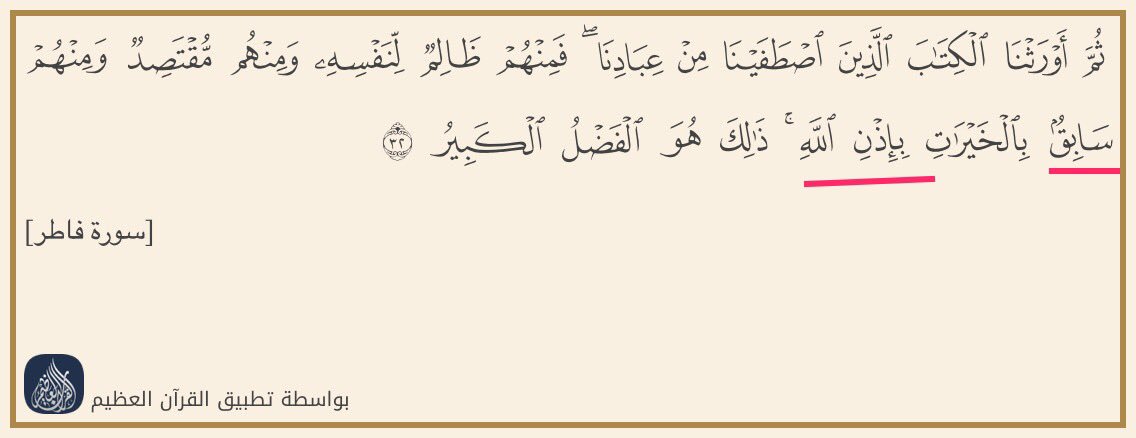 ثُمَّ أَوۡرَثۡنَا ٱلۡكِتَٰبَ ٱلَّذِينَ ٱصۡطَفَيۡنَا مِنۡ عِبَادِنَاۖ فَمِنۡهُمۡ ظَالِمٞ لِّنَفۡسِهِۦ وَمِنۡهُم مُّقۡتَصِدٞ وَمِنۡهُمۡ
سَابِقُۢ بِٱلۡخَيۡرَٰتِ بِإِذۡنِ ٱللَّهِۚ ذَٰلِكَ هُوَ ٱلۡفَضۡلُ ٱلۡكَبِيرُ ٣٢
[سورة فاطر]
بواسطة تطبيق القرآن العظيم